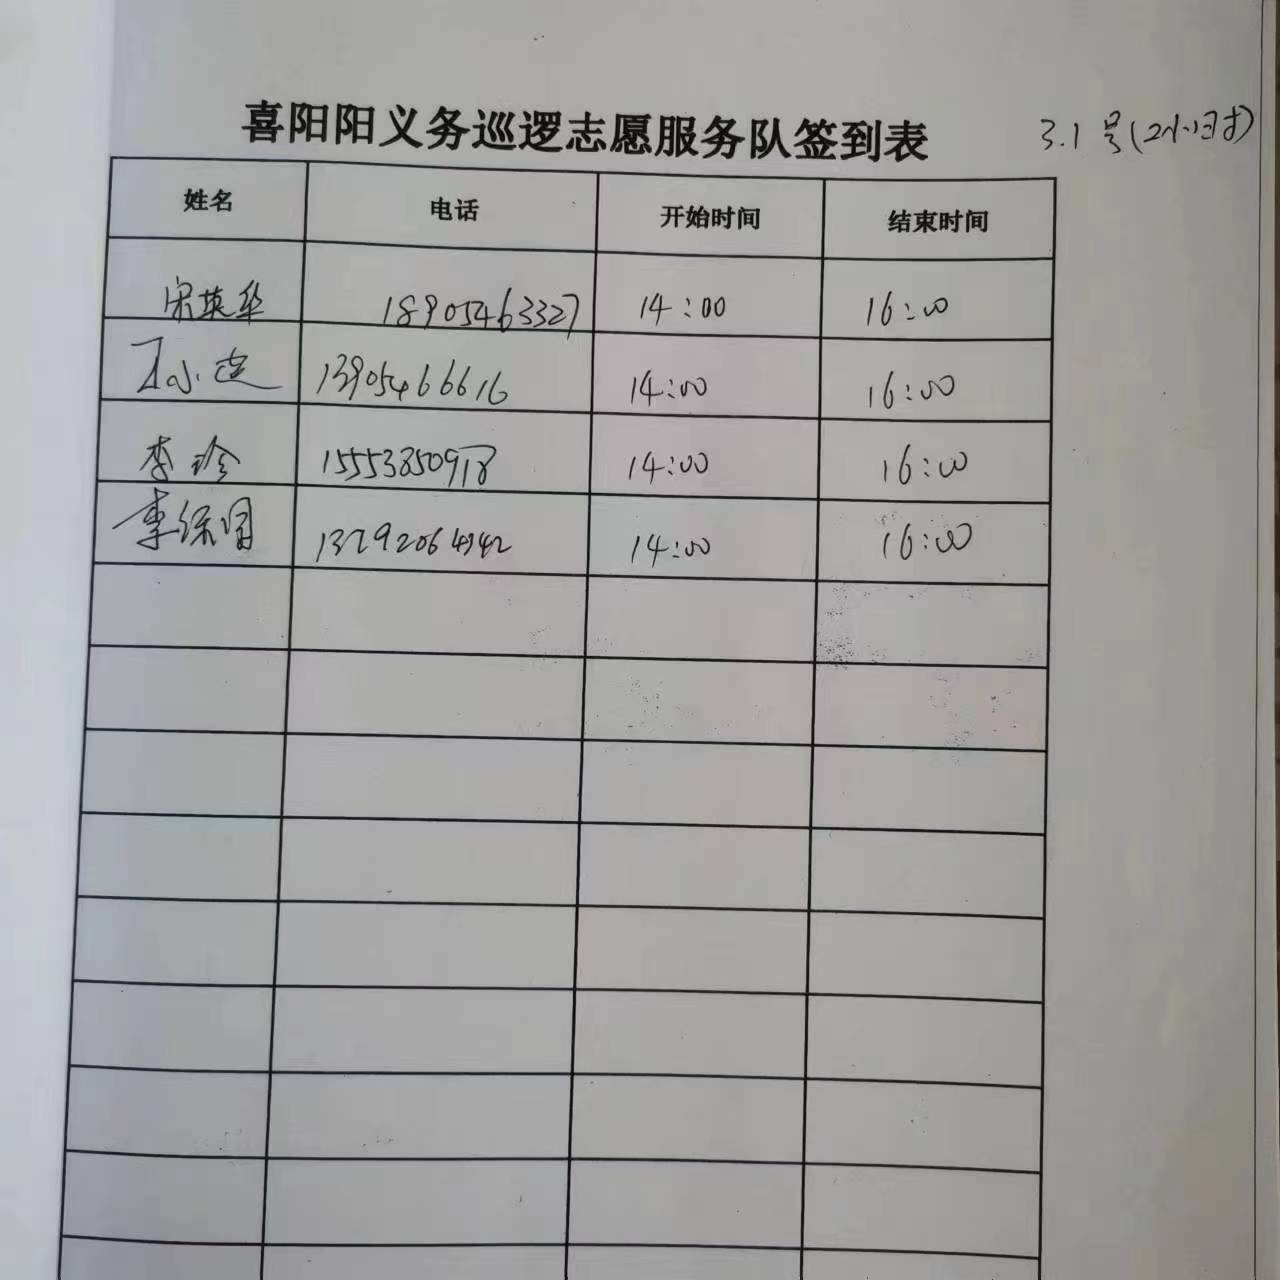 喜阳阳义务巡逻志愿服务队签到表 3.1号(2小时)
姓名 电话 开始时间 结束时间
宋英华 18905463327 14:00 16:00
王小 13905466616 14:00 16:00
李玲 15553850918 14:00 16:00
李保国 13792064942 14:00 16:00